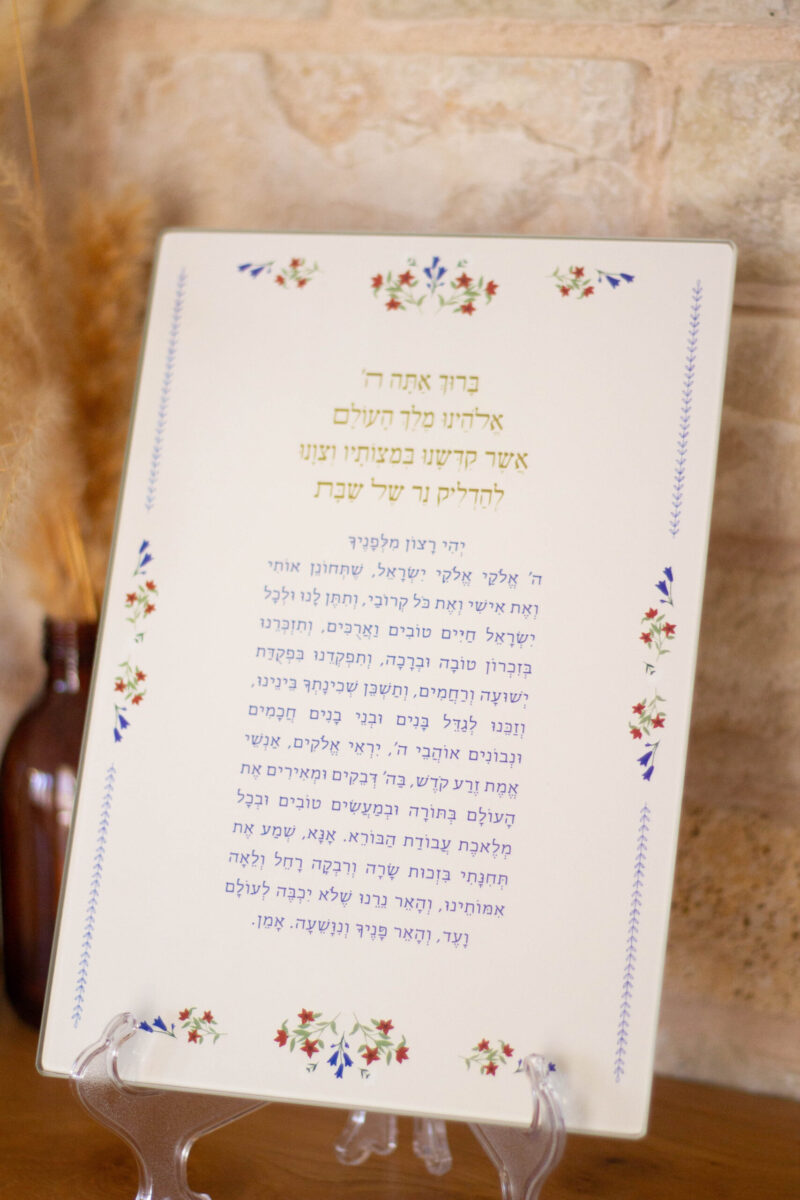 בָּרוּךְ אַתָּה ה'
אֱלֹהֵינוּ מֶלֶךְ הָעוֹלָם
אֲשֶׁר קִדְּשָׁנוּ בְּמִצְוֹתָיו וְצִוָּנוּ
לְהַדְלִיק נֵר שֶׁל שַׁבָּת
יְהִי רָצוֹן מִלְּפָנֶיךָ
ה' אֱלֹקַי אֱלֹקֵי יִשְׂרָאֵל, שֶׁתְּחוֹנֵן אוֹתִי
וְאֶת אִישִׁי וְאֶת כֹּל קְרוֹבַי, וְתִתֵּן לָנוּ וּלְכָל
יִשְׂרָאֵל חַיִּים טוֹבִים וַאֲרֻכִּים, וְתִזְכְּרֵנוּ
בְּזִכְרוֹן טוֹבָה וּבְרָכָה, וְתִפְקְדֵנוּ בִּפְקֻדַּת
יְשׁוּעָה וְרַחֲמִים, וְתַשְׁכֵּן שְׁכִינָתְךָ בֵּינֵינוּ,
וְזַכֵּנוּ לְגַדֵּל בָּנִים וּבְנֵי בָנִים חֲכָמִים
וּנְבוֹנִים אוֹהֲבֵי ה', יִרְאֵי אֱלֹקִים, אַנְשֵׁי
אֱמֶת זֶרַע קֹדֶשׁ, בַּה' דְּבֵקִים וּמְאִירִים אֶת
הָעוֹלָם בְּתּוֹרָה וּבְמַעֲשִׂים טוֹבִים וּבְכָל
מְלֶאכֶת עֲבוֹדַת הַבּוֹרֵא. אָנָּא, שְׁמַע אֶת
תְּחִנָּתִי בִּזְכוּת שָׂרָה וְרִבְקָה רָחֵל וְלֵאָה
אִמּוֹתֵינוּ, וְהָאֵר נֵרֵנוּ שֶׁלֹּא יִכְבֶּה לְעוֹלָם
וָעֶד, וְהָאֵר פָּנֶיךָ וְנִוָּשֵׁעָה. אָמֵן.